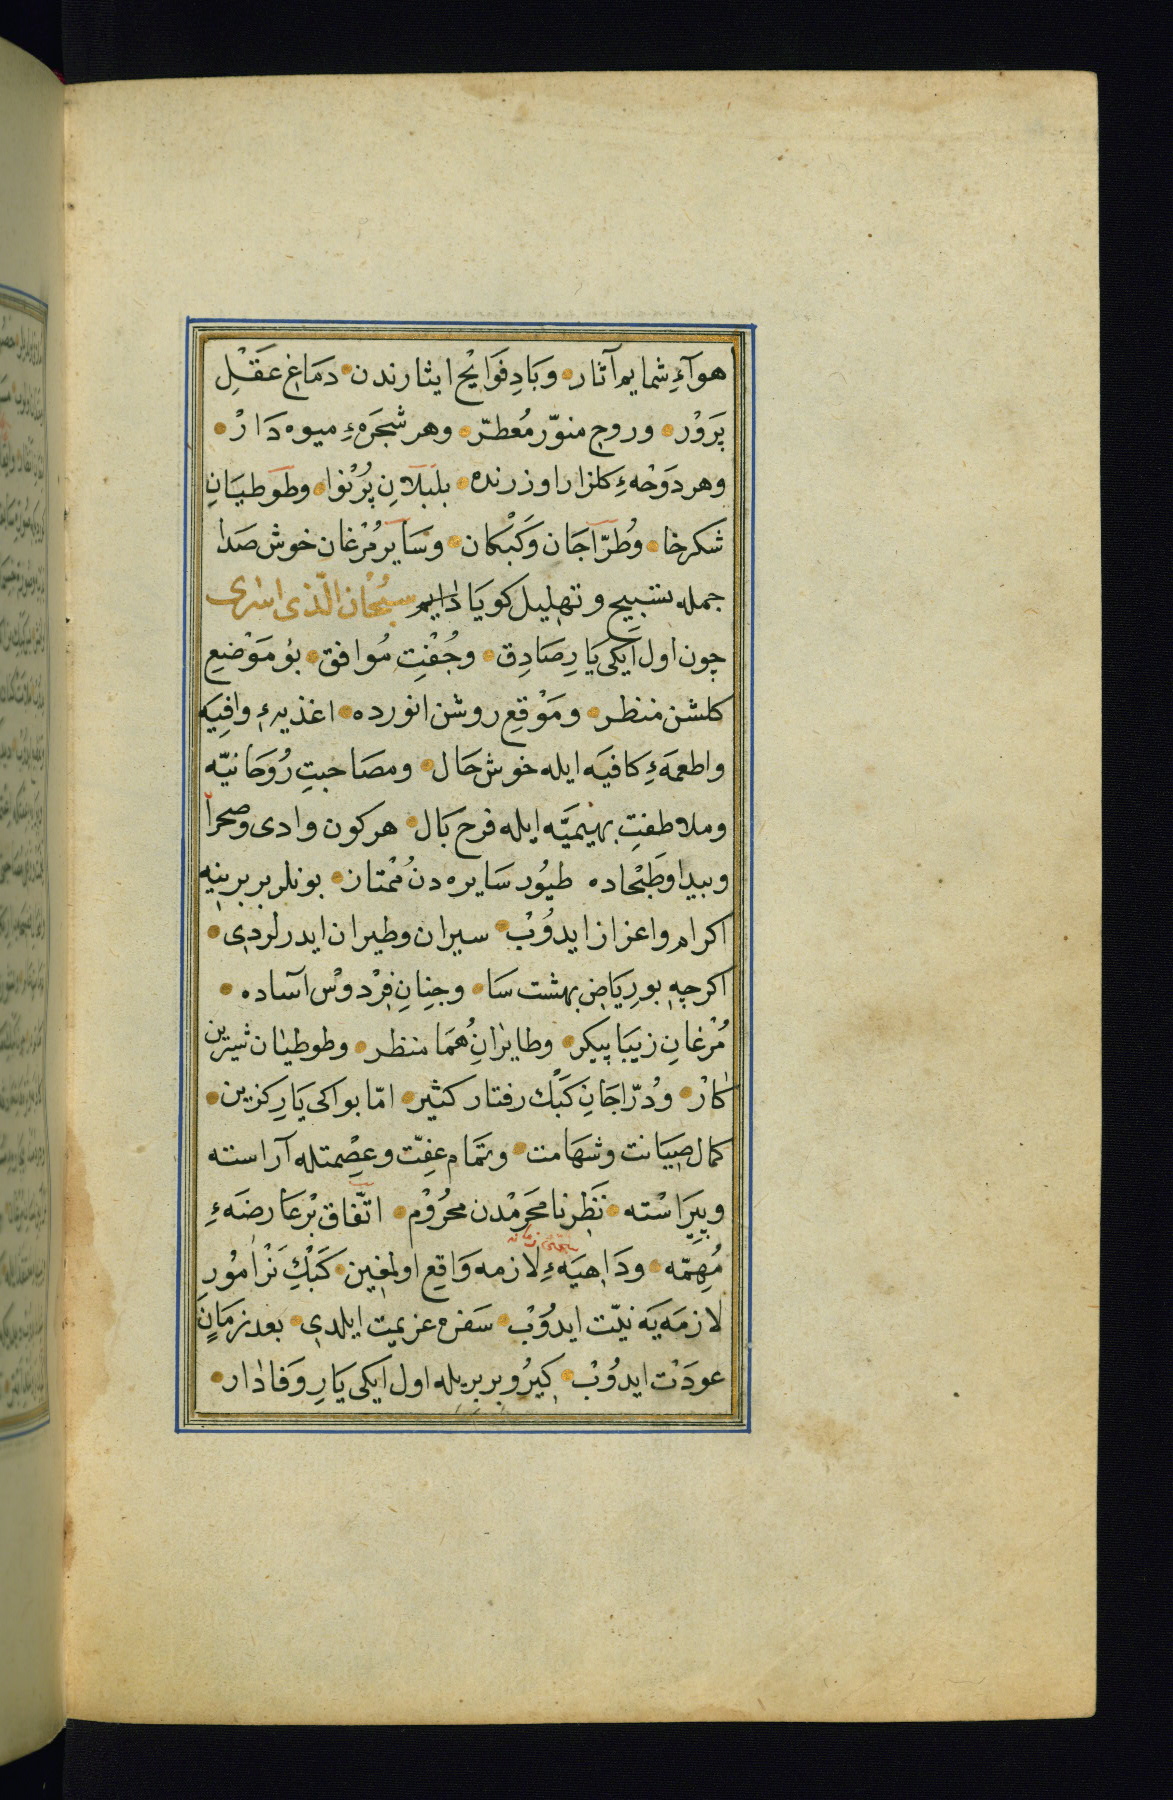 هوآءِ شمايم آثار وَبَادِ فَوَايِح ايثارندن دمَاغِ عَقْلِ
پَرَوْر وروح منوّر مُعطرّ وهر شَجَرَهءِ ميوه دَارْ
وهر دَوْحَهءِ كلزار اوزرنده بلبلانِ پُرْنوا وطوَطيَانِ
شكرخا وُطُرّاَجَان وَكَبْكان وسَاير مُرْغان خوش صَدا
جمله تسبيح وتهليل كويَا دايم سُبْحَان الّذى اسْرى
چون اول اَيكى يَارِ صَادِق وجُفْتِ مُوافق بوُ مَوْضِعِ
كلشن منظر ومَوْقِعِ روشن انورده اغذيهءِ وافِيَه
واطعمَهءِ كافيَه ايله خوش حَال ومصَاحبتِ رُوحَانيّه
وملاطفتِ بهيْميّه ايله فرح بَال هر كون وادى وصحرآ
وبيدا وبَطْحاده طيُور سَايره دن مُمْتاز بونلر بربرينه
اكرام واعزاز ايدوُبْ سيران وطيران ايدرلردى
اكرچه بو رِيَاض بهشت سَا وجِنانِ فِرْدوسْ آساده
مُرْغانِ زيبَا پيكر وطايرانِ هُمَا منظر وطوطيان شيرين
كارْ ودُرّاجَانِ كَبْك رفتار كثير امّا بو اكى يَارِ كزين
كمال صِيَانت وشهَامت وتمَام عِفّت وعِصْمتله آراسته
وپيرَاسْته نَظرِ نامحَرمْدن محَرُوْم اتّفاق بْر عَارضَهءِ
مُهِمّه ودَاهيَهءِ لازمه وَاقِع اولمغين كَبْكِ نَرْ امُورِ
لازمَه يَه نيّت ايدوُبْ سَفره عزيمت ايلدى بعد زمَانٍ
عودَتْ ايدوُبْ كيرُو بربريله اول اَيكى يَارِ وَفادار